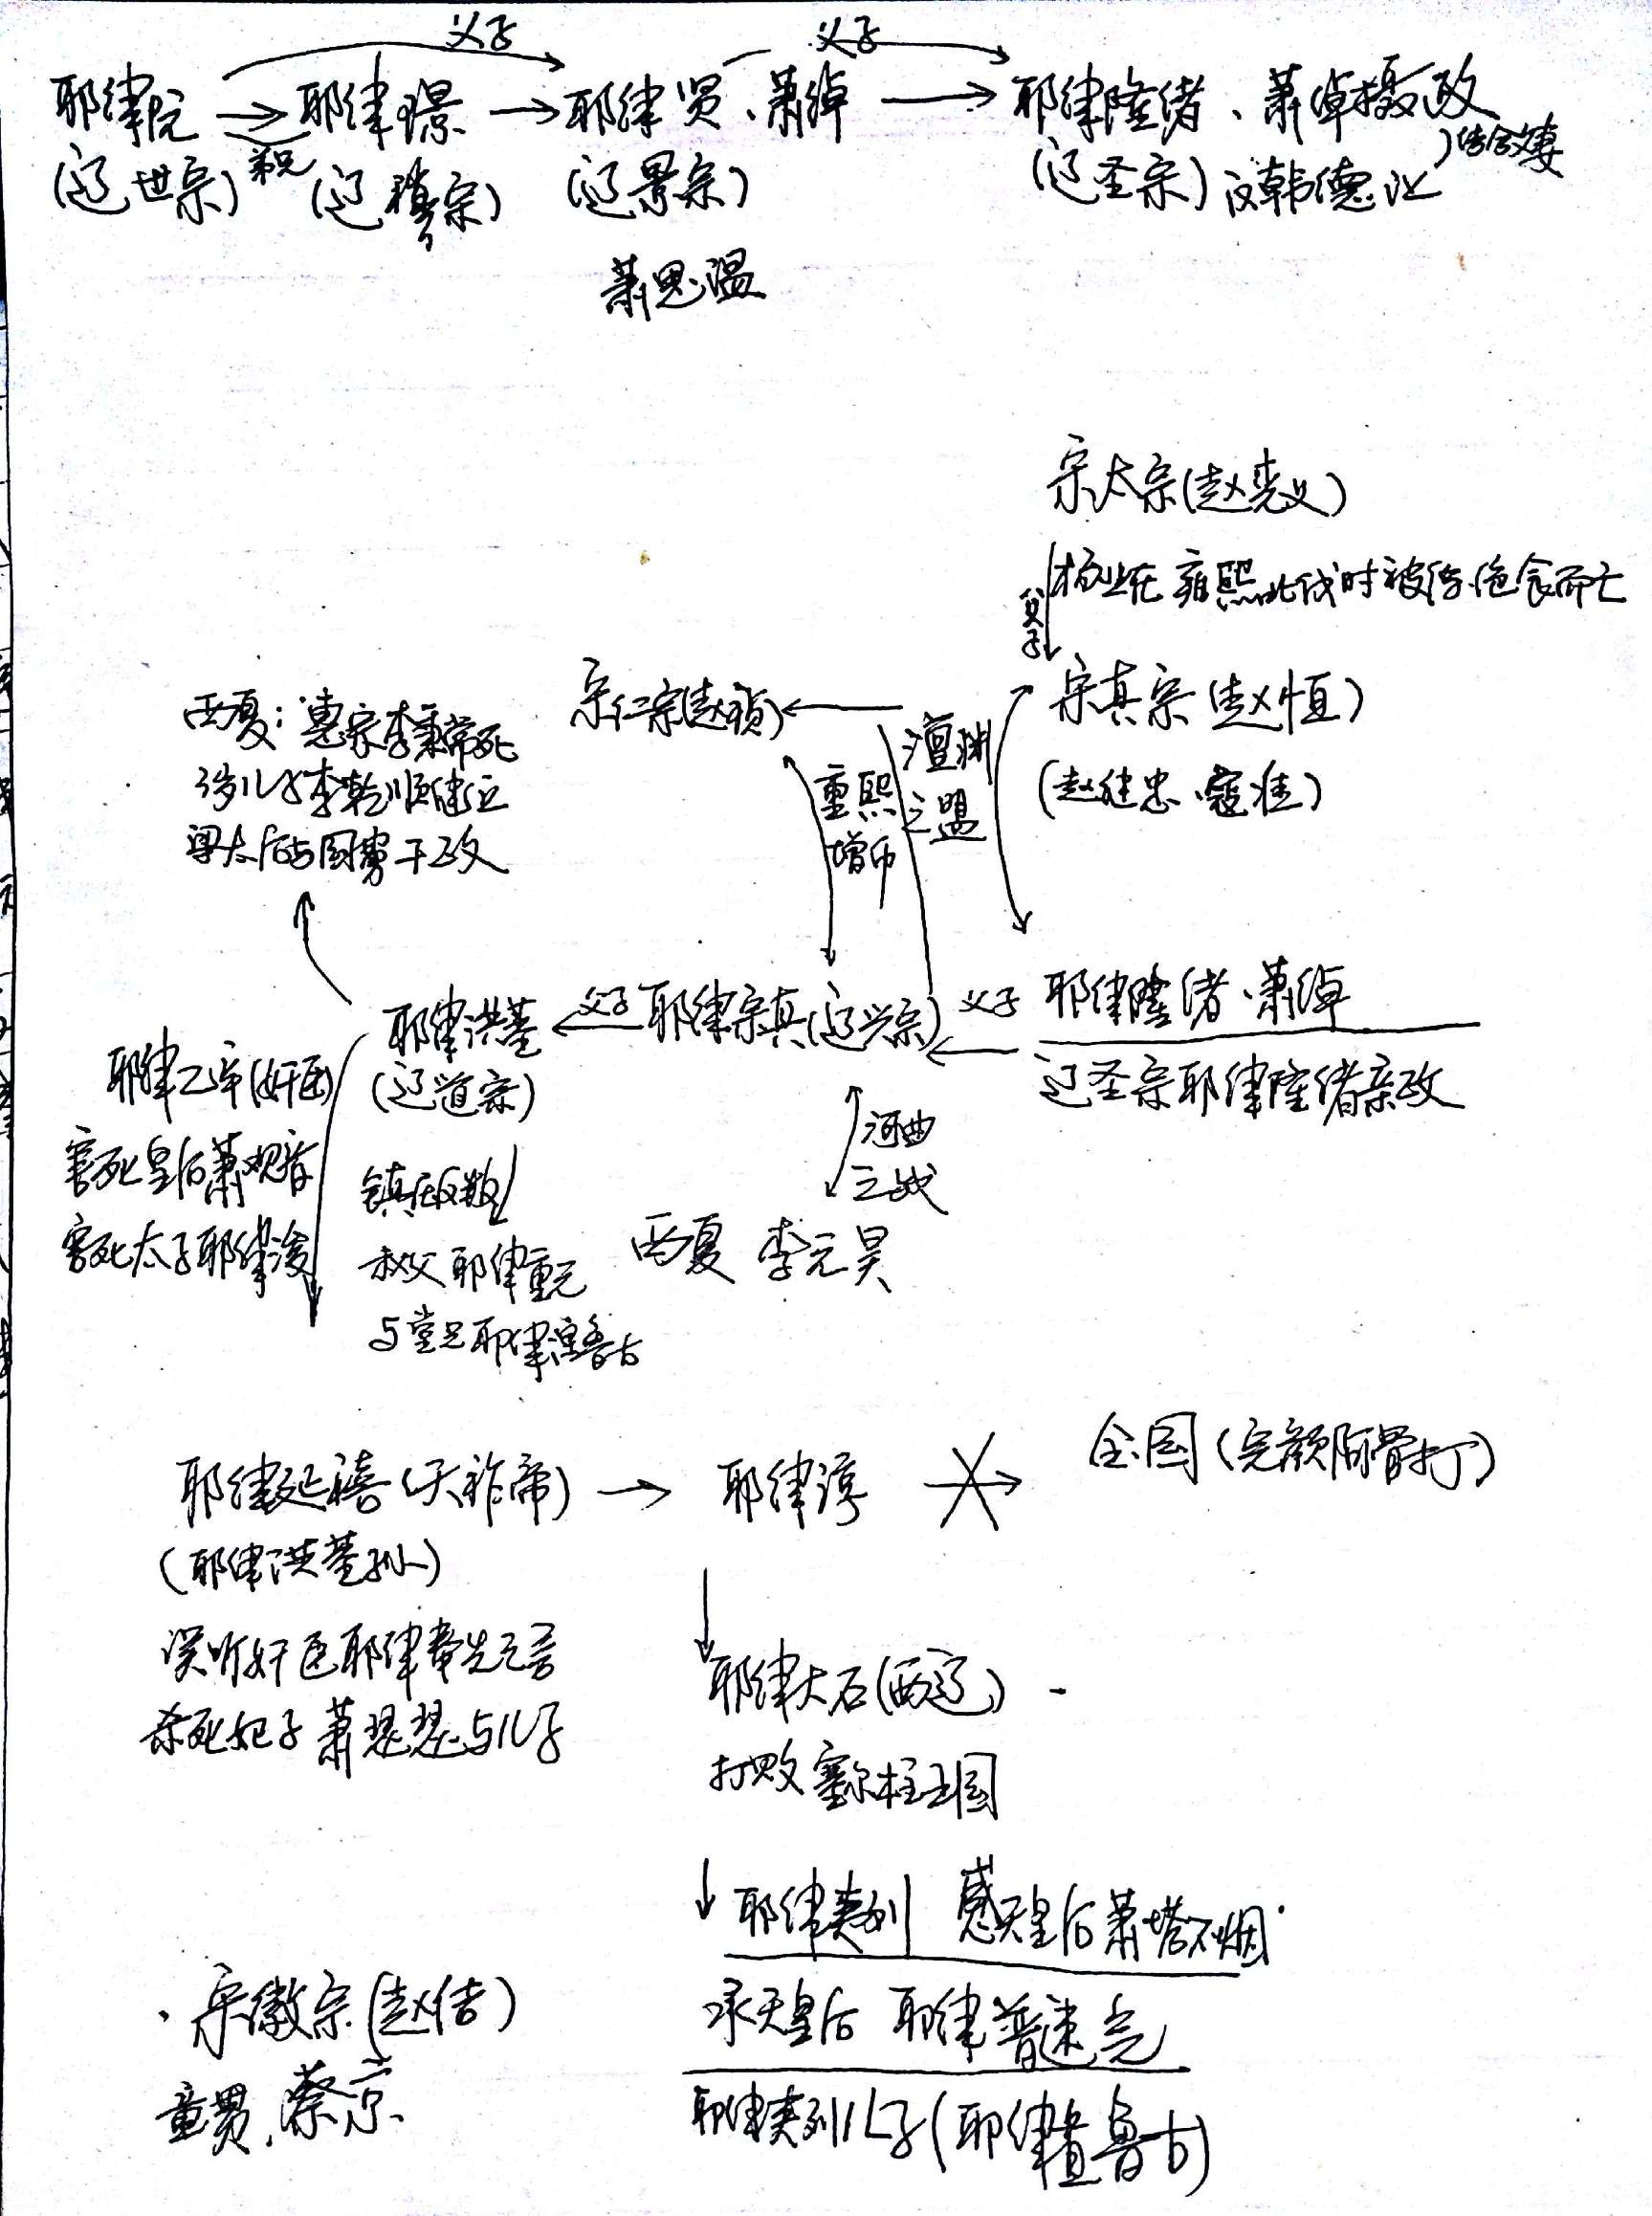 父子
父子
耶律阮 耶律璟 耶律贤、萧绰 耶律隆绪、萧绰摄政
(辽世宗) (辽穆宗) (辽景宗) (辽圣宗) 汉韩德让
萧思温
宋太宗(赵光义)
杨业在雍熙北伐时被俘绝食而亡
父子
宋真宗(赵恒)
(赵继忠、寇准)
宋仁宗(赵祯)
澶渊之盟
重熙
增币
西夏:惠宗李秉常死
3岁儿子李乾顺继立
梁太后与国舅干政
耶律洪基 父子 耶律宗真(辽兴宗) 父子 耶律隆绪、萧绰
(辽道宗)
辽圣宗耶律隆绪亲政
耶律乙辛(奸臣)
害死皇后萧观音
害死太子耶律浚
镇压叛
叔父耶律重元
与堂兄耶律涅鲁古
河曲
之战
西夏 李元昊
耶律延禧(天祚帝) 耶律淳 金国(完颜阿骨打)
(耶律洪基孙)
误听奸臣耶律奉先之言
杀死妃子萧瑟瑟与儿子
耶律大石(西辽)
打败塞尔柱王国
耶律夷列 感天皇后萧塔不烟
承天皇后 耶律普速完
耶律夷列儿子(耶律直鲁古)
宋徽宗(赵佶)
童贯、蔡京